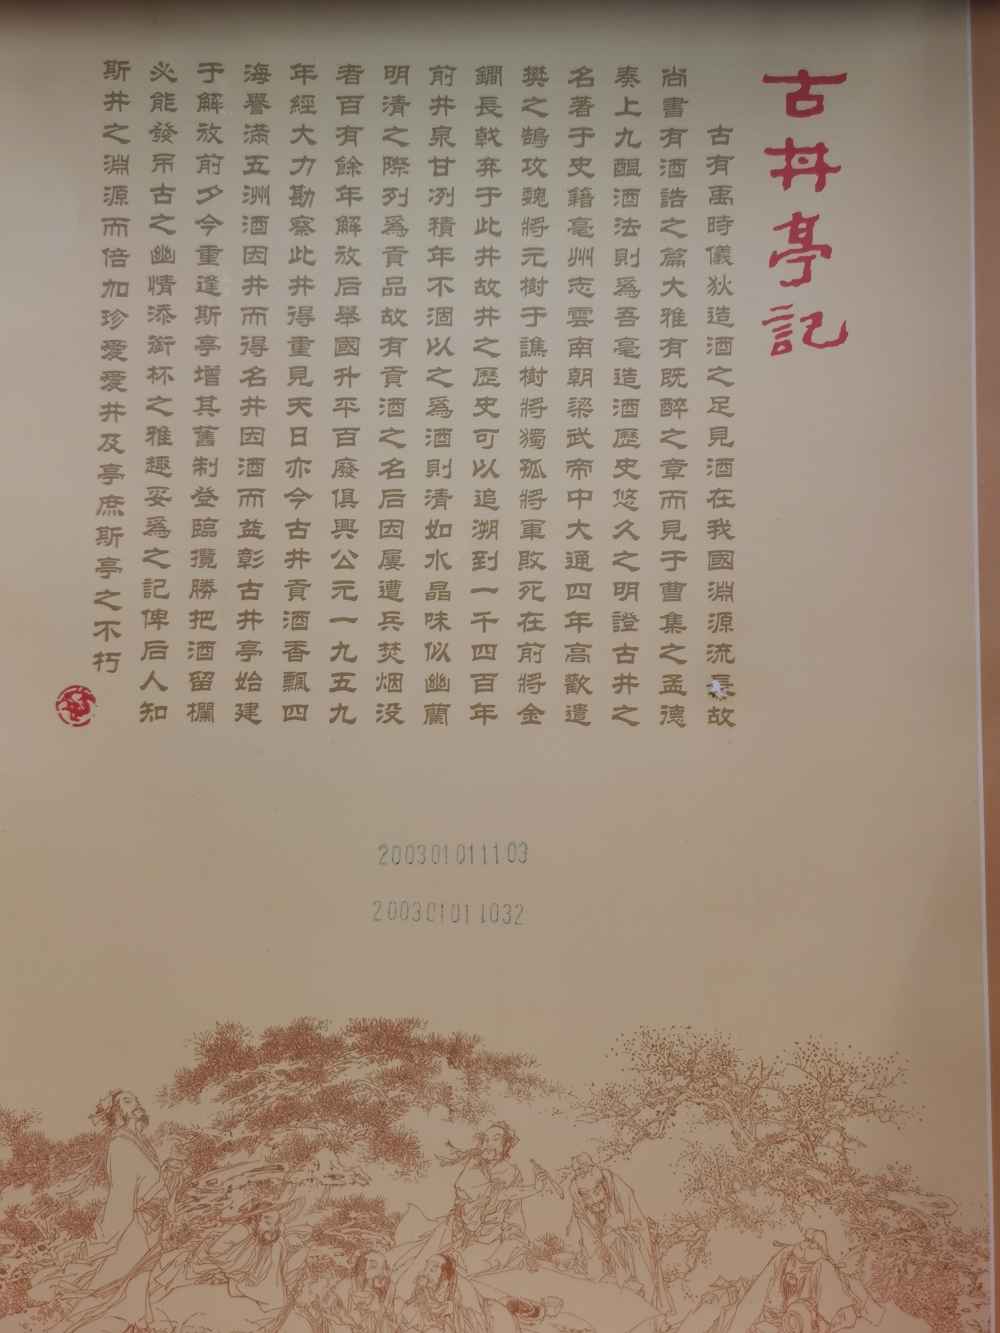 古井亭記
古有禹時儀狄造酒之足見酒在我國淵源流長故
尚書有酒誥之篇大雅有既醉之章而見于曹集之孟德
奏上九醞酒法則爲吾亳造酒歷史悠久之明證古井之
名著于史籍亳州志雲南朝梁武帝中大通四年高歡遣
樊之鵠攻魏將元樹于譙樹將獨孤將軍敗死在前將金
鐧長戟弃于此井故井之歷史可以追溯到一千四百年
前井泉甘冽積年不涸以之爲酒則清如水晶味似幽蘭
明清之際列爲貢品故有貢酒之名后因屢遭兵焚烟没
者百有餘年解放后舉國升平百廢俱興公元一九五九
年經大力勘察此井得重見天日亦今古井貢酒香飄四
海譽滿五洲酒因井而得名井因酒而益彰古井亭始建
于解放前夕今重達斯亭增其舊制登臨攬勝把酒留欄
必能發吊古之幽情添銜杯之雅趣妥爲之記俾后人知
斯井之淵源而倍加珍愛愛井及亭庶斯亭之不朽
200301011103
200301011032